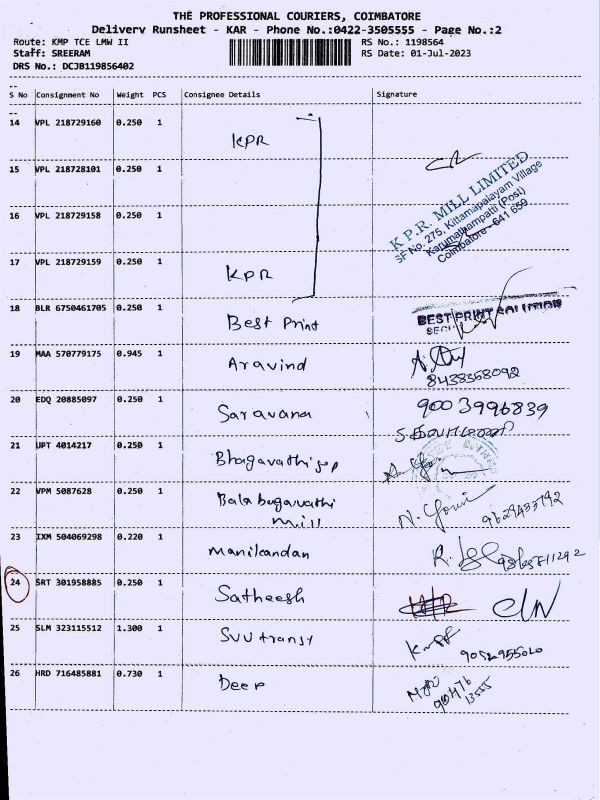 THE PROFESSIONAL COURIERS, COIMBATORE
Delivery Runsheet - KAR - Phone No.:0422-3505555 - Page No.:2
Route: KMP TCE LMW II
RS No.: 1198564
Staff: SREERAM
RS Date: 01-Jul-2023
DRS No.: DCJB119856402
S No Consignment No Weight PCS Consignee Details Signature
14 VPL 218729160 0.250 1 KPR
15 VPL 218728101 0.250 1
K.P.R. MILL LIMITED
SF No. 275, Kittampalayam Village
Karumathampatti (Post)
Coimbatore - 641 659
16 VPL 218729158 0.250 1
17 VPL 218729159 0.250 1 KPR
18 BLR 6750461705 0.250 1 Best Print BEST PRINT SOLUTION
19 MAA 570779175 0.945 1 Aravind
8438358092
20 EDQ 20885097 0.250 1 Saravana 9003996839
21 UPT 4014217 0.250 1
22 VPM 5087628 0.250 1 Bala bugavathi
mill
N. Gowri 9629433792
23 IXM 504069298 0.220 1 Manikandan
24 SRT 301958885 0.250 1 Satheesh
25 SLM 323115512 1.300 1
26 HRD 716485881 0.730 1 Deep
90476
13555